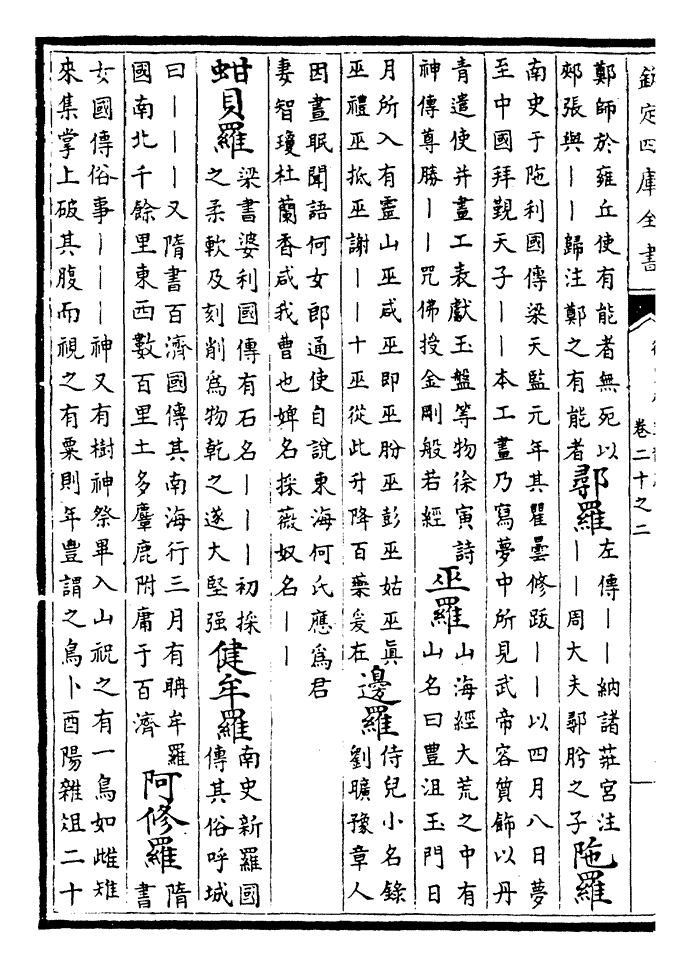 欽定四庫全書
卷二十之二
鄭師於雍丘使有能者無死以
郟張與丨丨歸注鄭之有能者
鄩羅
左傳丨丨納諸莊宮注
丨丨周大夫鄩肸之子
陁羅
南史于陁利國傳梁天監元年其瞿曇修跋丨丨以四月八日夢
至中國拜覲天子丨丨本工畫乃寫夢中所見武帝容質飾以丹
青遣使并畫工表獻玉盤等物徐寅詩
神傳尊勝丨丨咒佛授金剛般若經
巫羅
山海經大荒之中有
山名曰豐沮玉門日
月所入有靈山巫咸巫即巫朌巫彭巫姑巫眞
巫禮巫抵巫謝丨丨十巫從此升降百藥爰在
邊羅
侍兒小名錄
劉曠豫章人
因晝眠聞語何女郎通使自說東海何氏應爲君
妻智瓊杜蘭香咸我曹也婢名採薇奴名丨丨
蚶貝羅
梁書婆利國傳有石名丨丨丨初採
之柔軟及刻削爲物乾之遂大堅强
健牟羅
南史新羅國
傳其俗呼城
曰丨丨丨又隋書百濟國傳其南海行三月有聃牟羅
國南北千餘里東西數百里土多麞鹿附庸于百濟
阿修羅
隋
書
女國傳俗事丨丨丨神又有樹神祭畢入山祝之有一鳥如雌雉
來集掌上破其腹而視之有粟則年豐謂之鳥卜酉陽雜俎二十